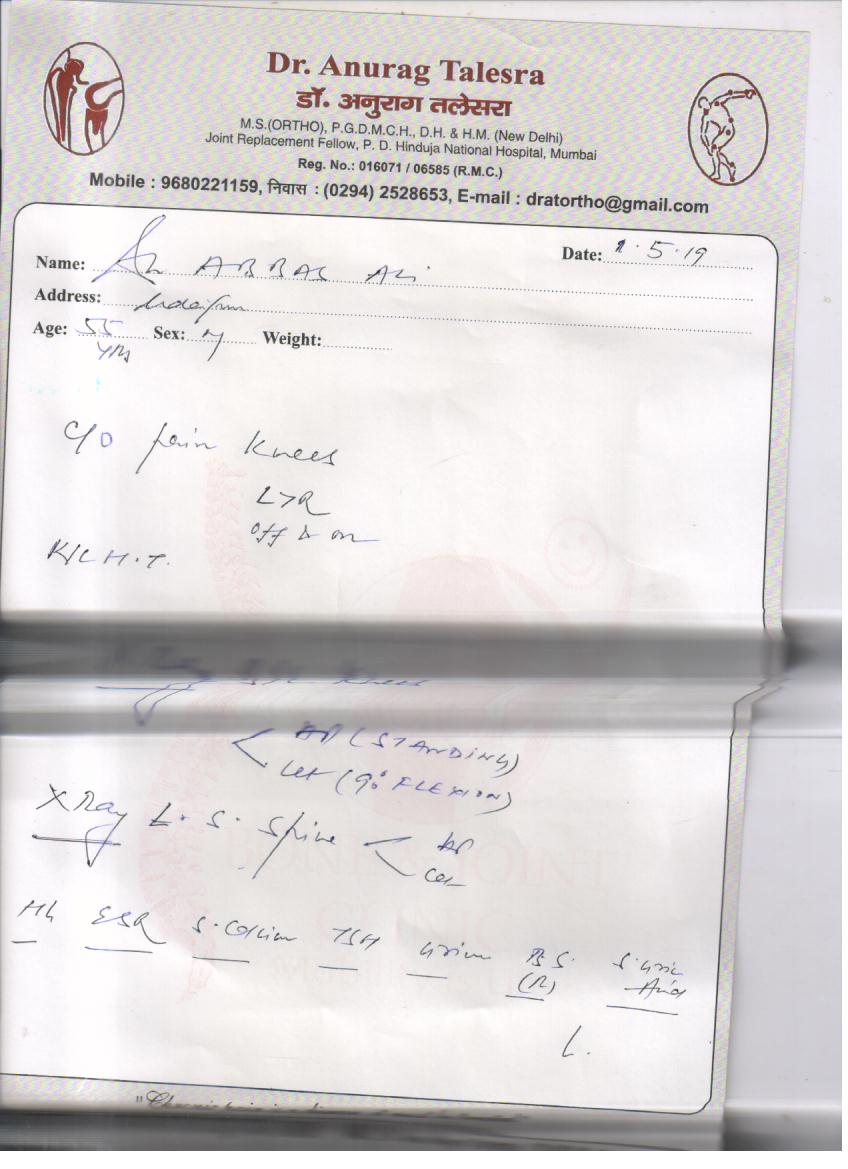 Dr. Anurag Talesra
डॉ. अनुराग तलेसरा
M.S.(ORTHO), P.G.D.M.C.H., D.H. & H.M. (New Delhi)
Joint Replacement Fellow, P. D. Hinduja National Hospital, Mumbai
Reg. No.: 016071 / 06585 (R.M.C.)
Mobile : 9680221159, निवास : (0294) 2528653, E-mail : dratortho@gmail.com
Date: 1.5.19
Name: ABBAS ALi
Address:
Age: 55 Sex: M Weight:
yrs
C/O pain Knees
L>R
off & on
K/C H.T.
X Ray Knees
AP (STANDING)
Lat (90° FLEXION)
X Ray L.S. Spine AP
Lat
Hb ESR S. Calcium TSH Urine B.S. S. Uric
(R) Acid
BONE & JOINT
CLINIC